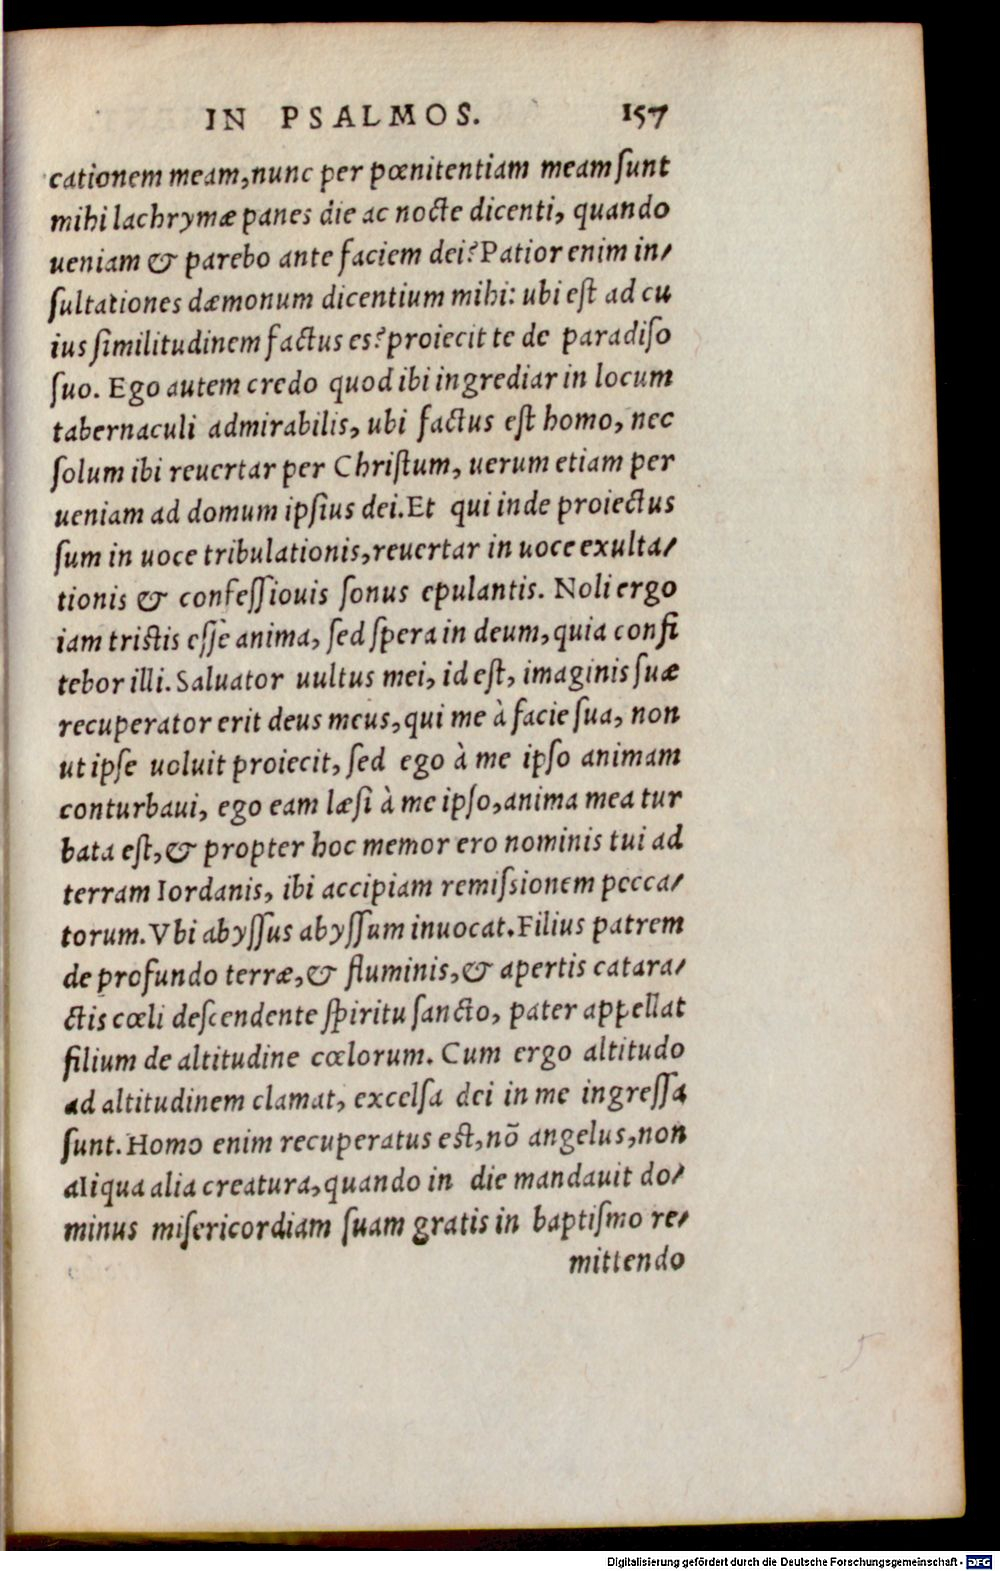 IN PSALMOS. 157
cationem meam, nunc per pœnitentiam meam ſunt
mihi lachrymæ panes die ac nocte dicenti, quando
ueniam & parebo ante faciem dei? Patior enim in/
ſultationes dæmonum dicentium mihi: ubi eſt ad cu
ius ſimilitudinem factus es? proiecit te de paradiſo
ſuo. Ego autem credo quod ibi ingrediar in locum
tabernaculi admirabilis, ubi factus eſt homo, nec
ſolum ibi reuertar per Chriſtum, uerum etiam per
ueniam ad domum ipſius dei. Et qui inde proiectus
ſum in uoce tribulationis, reuertar in uoce exulta/
tionis & confeſſiouis ſonus epulantis. Noli ergo
iam triſtis eſſe anima, ſed ſpera in deum, quia confi
tebor illi. Saluator uultus mei, id eſt, imaginis ſuæ
recuperator erit deus meus, qui me à facie ſua, non
ut ipſe uoluit proiecit, ſed ego à me ipſo animam
conturbaui, ego eam læſi à me ipſo, anima mea tur
bata eſt, & propter hoc memor ero nominis tui ad
terram Iordanis, ibi accipiam remiſsionem pecca/
torum. Vbi abyſſus abyſſum inuocat. Filius patrem
de profundo terræ, & fluminis, & apertis catara/
ctis cœli deſcendente ſpiritu ſancto, pater appellat
filium de altitudine cœlorum. Cum ergo altitudo
ad altitudinem clamat, excelſa dei in me ingreſſa
ſunt. Homo enim recuperatus eſt, nõ angelus, non
aliqua alia creatura, quando in die mandauit do/
minus miſericordiam ſuam gratis in baptiſmo re/
mittendo
Digitalisierung gefördert durch die Deutsche Forschungsgemeinschaft - DFG